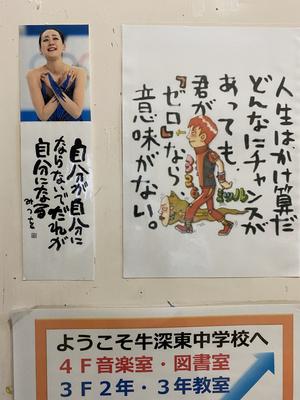 自分が自分に
ならないでだれが
自分になる
みつを
人生はかけ算だ
どんなにチャンスが
あっても、
君が
『ゼロ』なら、
意味がない。
ようこそ牛深東中学校へ
4F音楽室・図書室
3F2年・3年教室